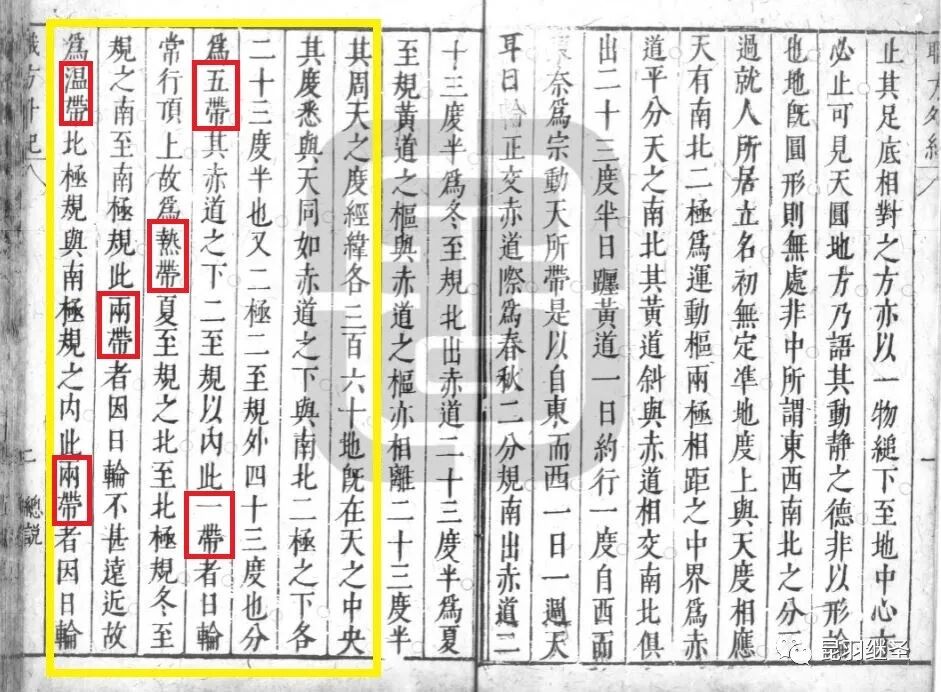 止其足底相對之方亦以一物縋下至地中心
必止可見天圓地方乃語其動靜之德非以形論
也地旣圓形則無處非中所謂東西南北之分
過就人所居立名初無定準地度上與天度相應
天有南北二極爲運動樞兩極相距之中界爲赤
道平分天之南北其黃道斜與赤道相交南北俱
出二十三度半日躔黃道一日約行一度自西而
東奈爲宗動天所帶是以自東而西一日一週天
耳日輪正交赤道際爲春秋二分規南出赤道二
十三度半爲冬至規北出赤道二十三度半爲夏
至規黃道之樞與赤道之樞亦相離二十三度半
其周天之度經緯各三百六十地旣在天之中央
其度悉與天同如赤道之下與南北二極之下各
二十三度半也又二極二至規外四十三度也分
爲五帶其赤道之下二至規以內此一帶者日輪
常行頂上故爲熱帶夏至規之北至北極規冬至
規之南至南極規此兩帶者因日輪不甚遠近故
爲温帶北極規與南極規之內此兩帶者因日輪
總說
昆羽继圣